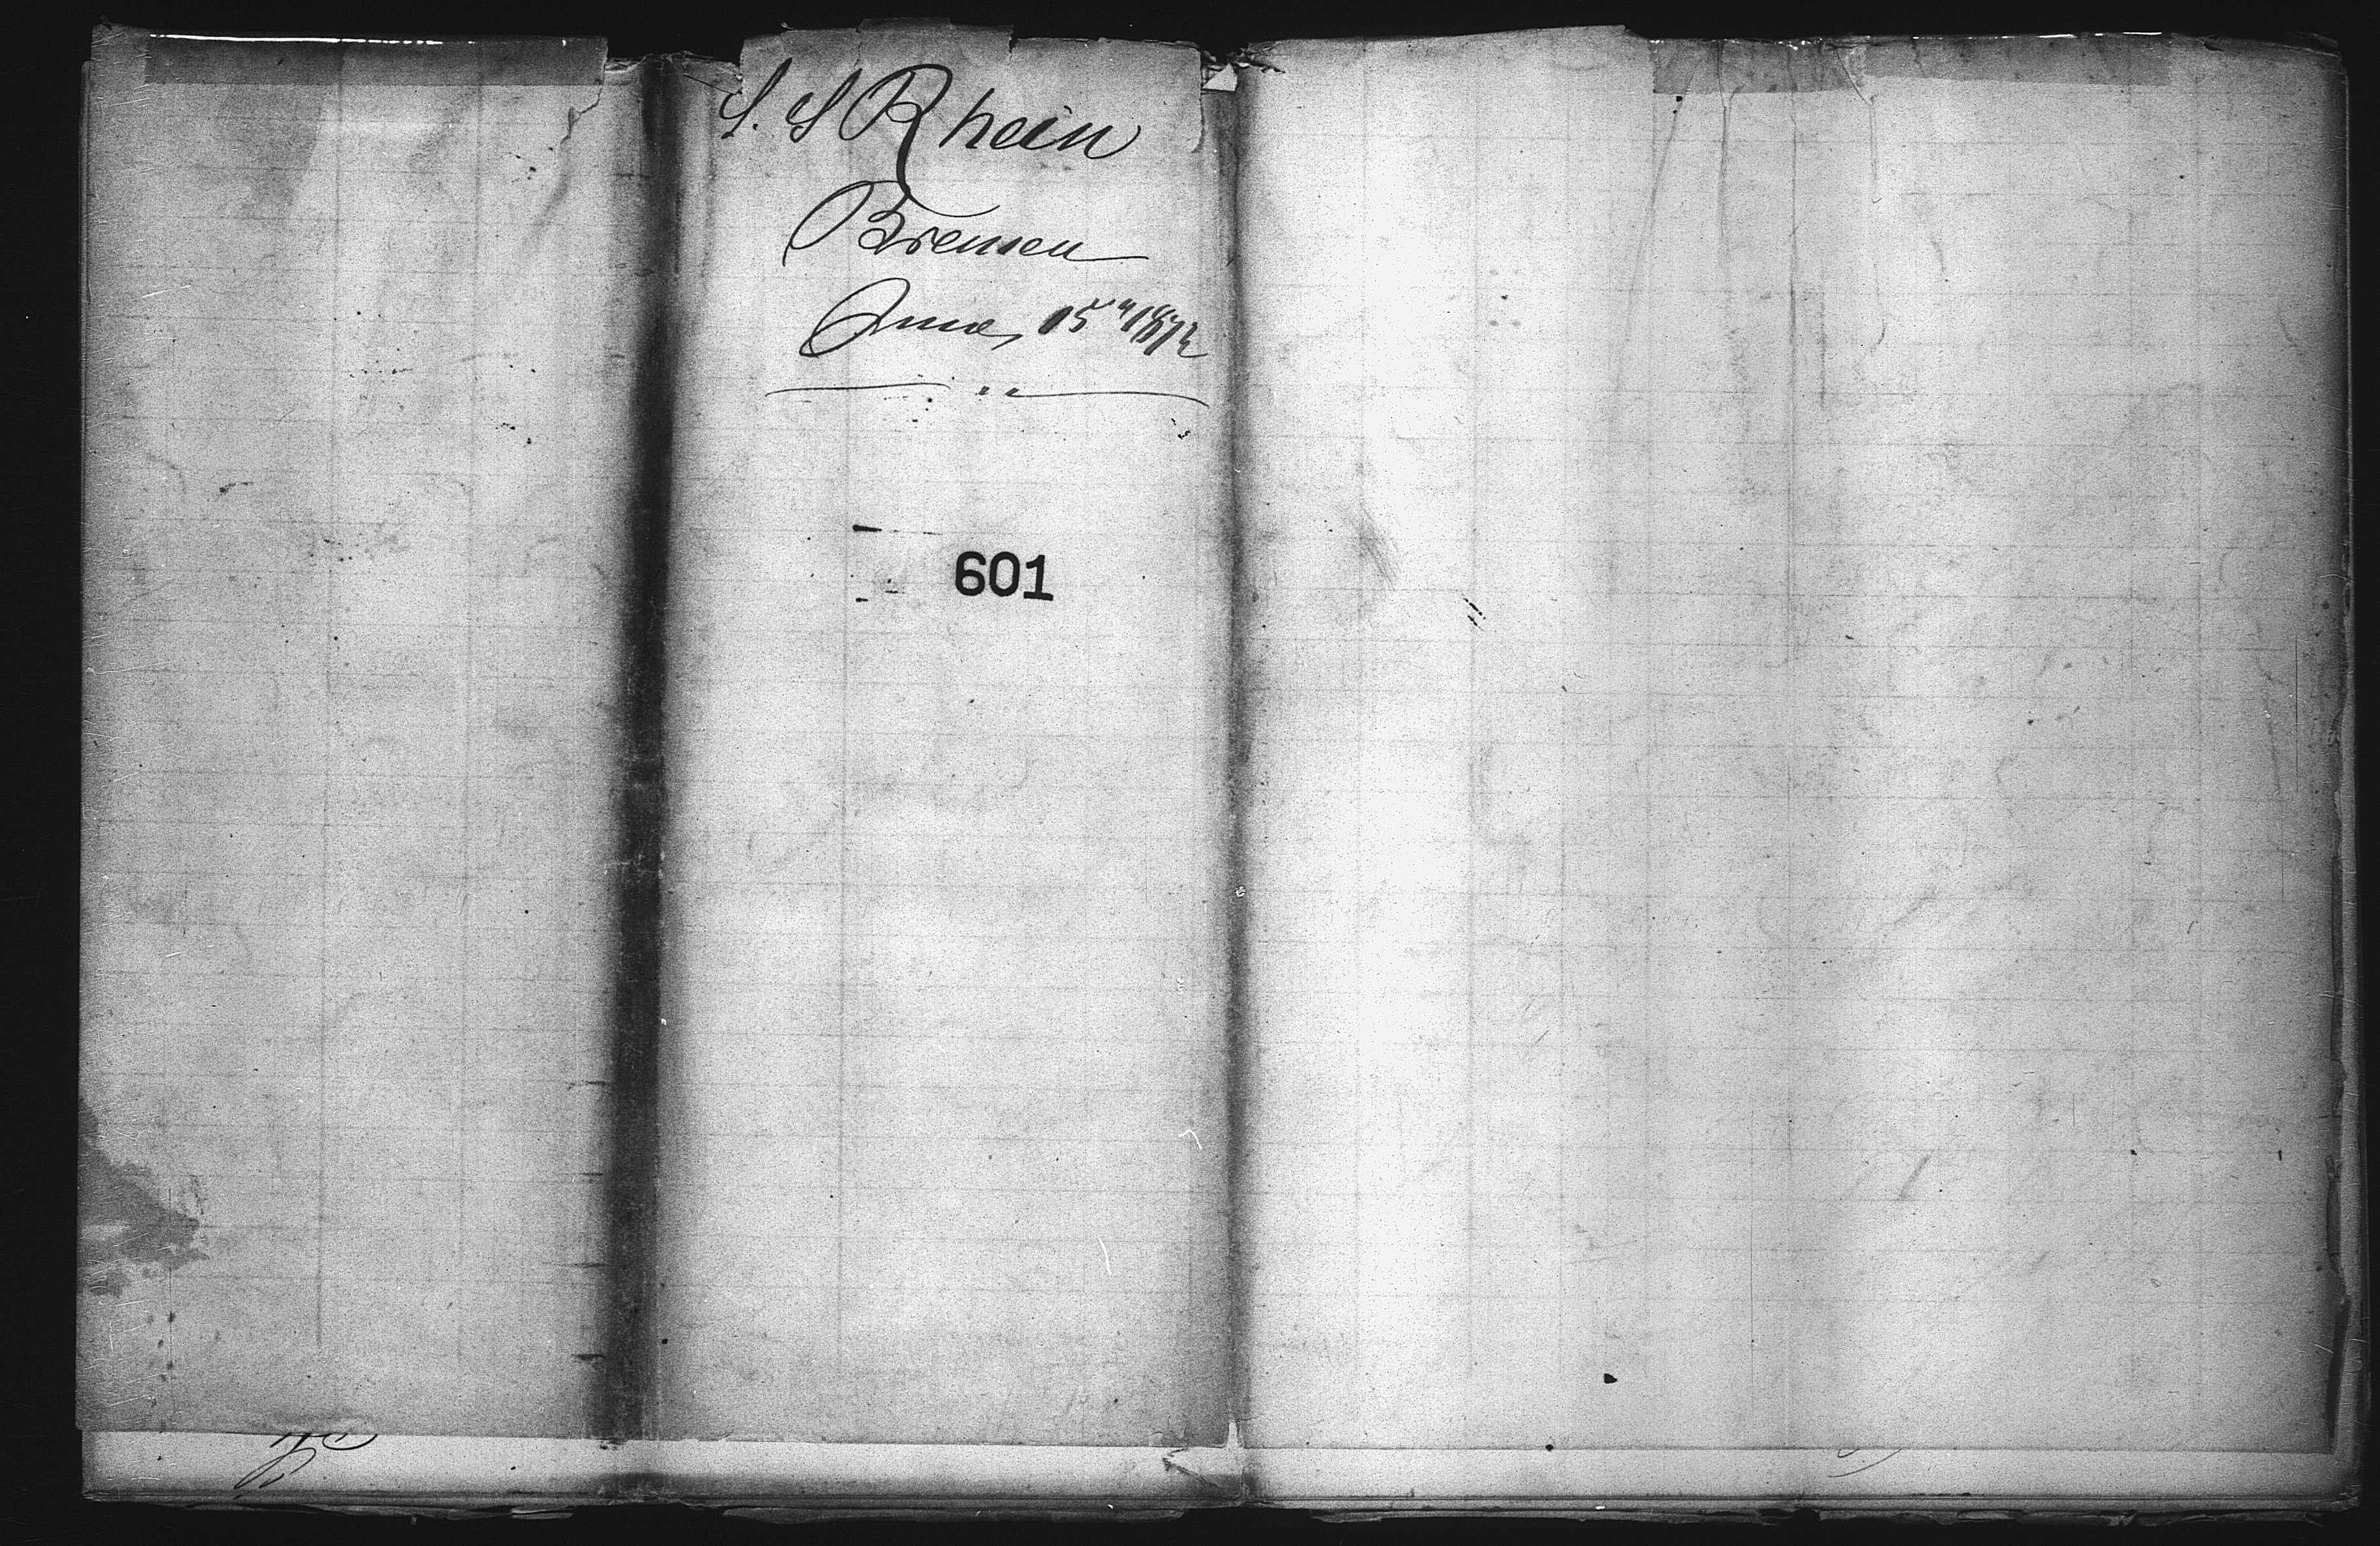 S. S Rhein
Bremen
June, 15" 1872
601